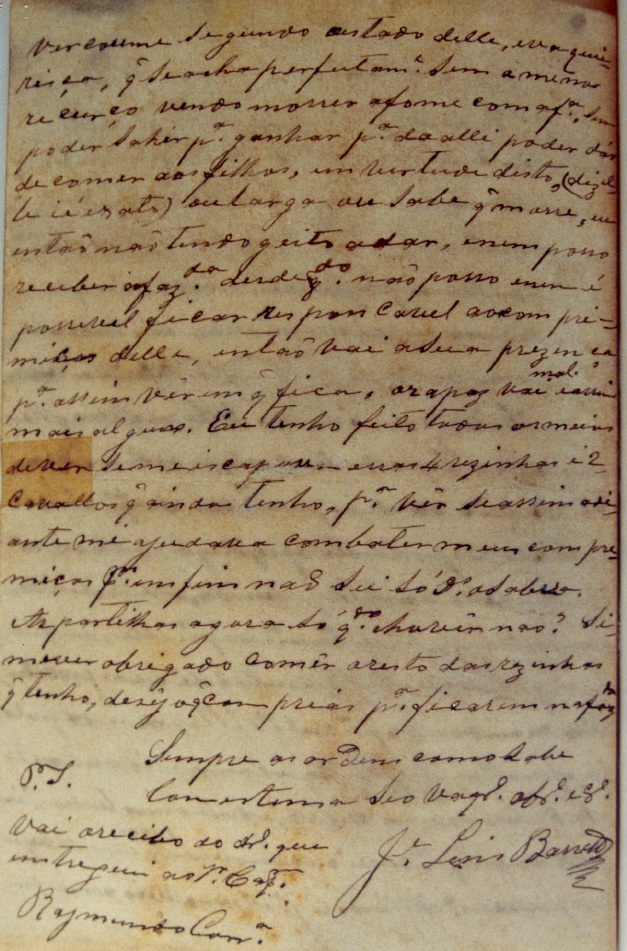 ver coume segundo o estado delle, era que
risca, q̃ se acha perfeitamᵉ. sem a menor
recurço vendo morrer a fome com a fª., sem
poder sahir pª. ganhar pª. daalli poder dar
de comer aos filhos, em vertude disto, (diz el-
le i é ezato) ou larga ou sabe q̃ morre, eu
então não tendo geito a dar, e nem posso
receber a fazᵈᵃ. desde qᵈᵒ. não posso e nem é
possivel ficar respon cavel ao com pri-
miços delle, então vai a sua prezença
pª. assim vêr em q̃ fica, o rapaz vai mal. e assim
mais alguas. Eu tenho feito todos os meios
de ver se me iscapavão essas 4 rezinhas i 2
cavallos q̃ ainda tenho, pª. vêr se assim adi-
ante mi ajudava combater meus com pre-
miços em fim não sei só Dˢ. o sabera.
As partilhas agora só qᵈᵒ. chovêr não? Si
me ver obrigado comêr o resto das rezinhas
q̃ tenho, desêjo q̃ com pre as pª. ficarem na fazᵈᵃ
Sempre as ordens como sabe
Com estema Seo
P. S.
Vai o recibo do dr. que
entreguei ao Sr. Capᵐ.
Raymundo
Jᵉ. Lins Barretto